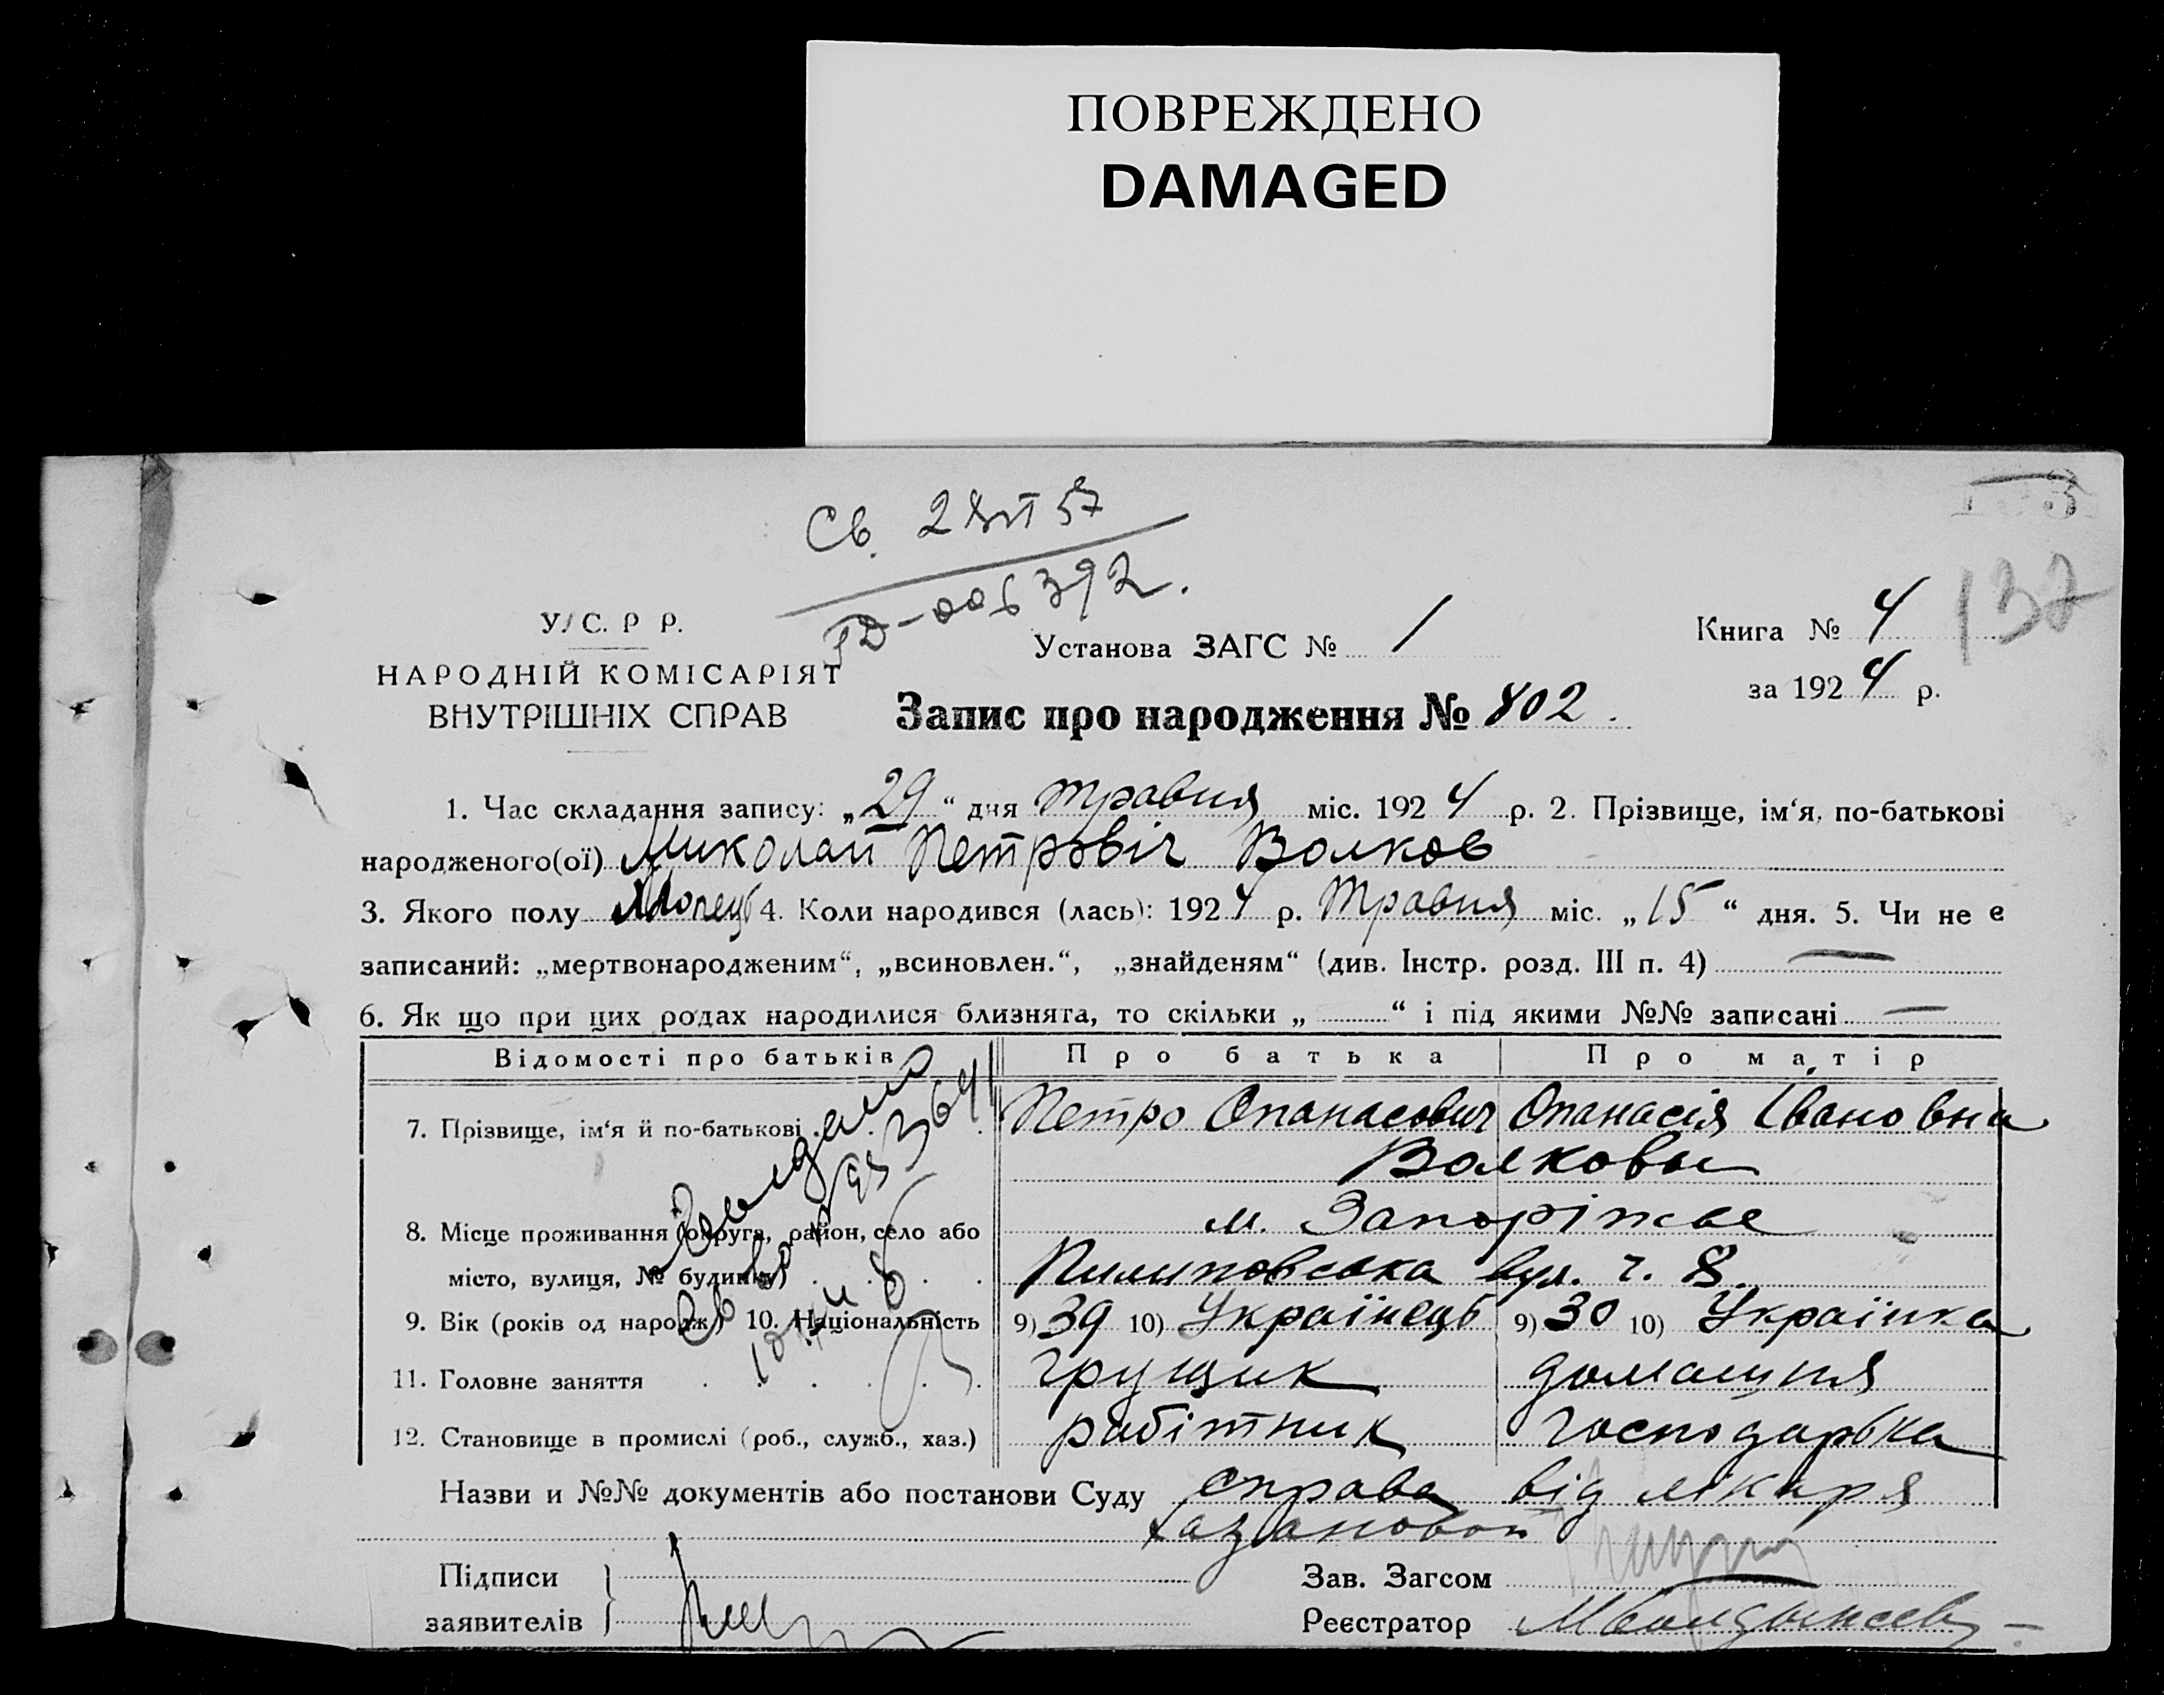 ПОВРЕЖДЕНО
DAMAGED
Св. 28 VI 57
-006392.
137
У. С. Р Р.
НАРОДНІЙ КОМІСАРІЯТ
ВНУТРІШНІХ СПРАВ
Установа ЗАГС № 1
Книга № 4
за 1924 р.
Запис про народження № 802.
1. Час складання запису: „29“ дня травня міс. 1924 р. 2. Прізвище, ім‘я, по-батькові
народженого(ої) Миколай Петровіч Волков
3. Якого полу Хлопець 4. Коли народився (лась): 1924 р. Травня міс. „15“ дня. 5. Чи не є
записаний: „мертвонародженим“, „всиновлен.“, „знайденям“ (див. Інстр. розд. III п. 4) —
6. Як що при цих родах народилися близнята, то скільки „ “ і під якими №№ записані —
Відомості про батьків Про батька Про матір
7. Прізвище, ім‘я й по-батькові Петро Опанасович Опанасія Івановна
Волковы
8. Місце проживання (округа, район, село або м. Запоріжье
місто, вулиця, № будинку) Пилиповська вул. ч. 8.
9. Вік (років од народж.) 10. Національність 9) 39 10) Українець 9) 30 10) Українка
11. Головне заняття грущик домашня
12. Становище в промислі (роб., служб., хаз.) рабітник господарка
Выдано
Назви и №№ документів або постанови Суду справа від лікаря
Хазановой
Підписи
заявителів
Зав. Загсом
Реєстратор